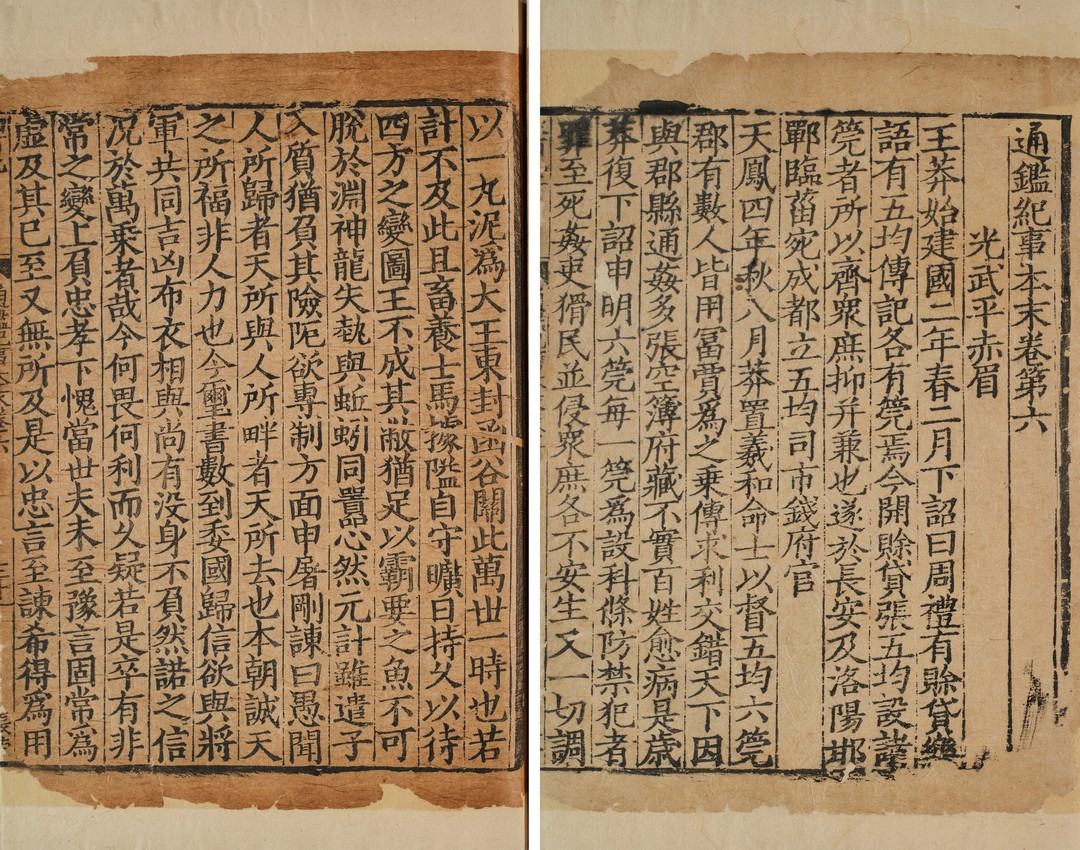 通鑑紀事本末卷第六
光武平赤眉
王莽始建國二年春二月下詔曰周禮有賒貸樂
語有五均傳記各有筦焉今開賒貸張五均設諸
筦者所以齊衆庶抑并兼也遂於長安及洛陽邯
鄲臨菑宛成都立五均司市錢府官
天鳳四年秋八月莽置羲和命士以督五均六筦
郡有數人皆用富賈爲之乗傳求利交錯天下因
與郡縣通姦多張空簿府藏不實百姓愈病是歳
莽復下詔申明六筦每一筦爲設科條防禁犯者
罪至死姦吏猾民並侵衆庶各不安生又一切調
以一丸泥爲大王東封函谷關此萬世一時也若
計不及此且畜養士馬據隘自守曠日持久以待
四方之變圖王不成其敝猶足以霸要之魚不可
脫於淵神龍失埶與蚯蚓同嚚心然元計雖遣子
入質猶負其險阨欲專制方面申屠剛諫曰愚聞
人所歸者天所與人所畔者天所去也本朝誠天
之所福非人力也今璽書數到委國歸信欲與將
軍共同吉凶布衣相與尚有没身不負然諾之信
况於萬乘者哉今何畏何利而久疑若是卒有非
常之變上負忠孝下愧當世夫未至豫言固常爲
虛及其已至又無所及是以忠言至諫希得爲用